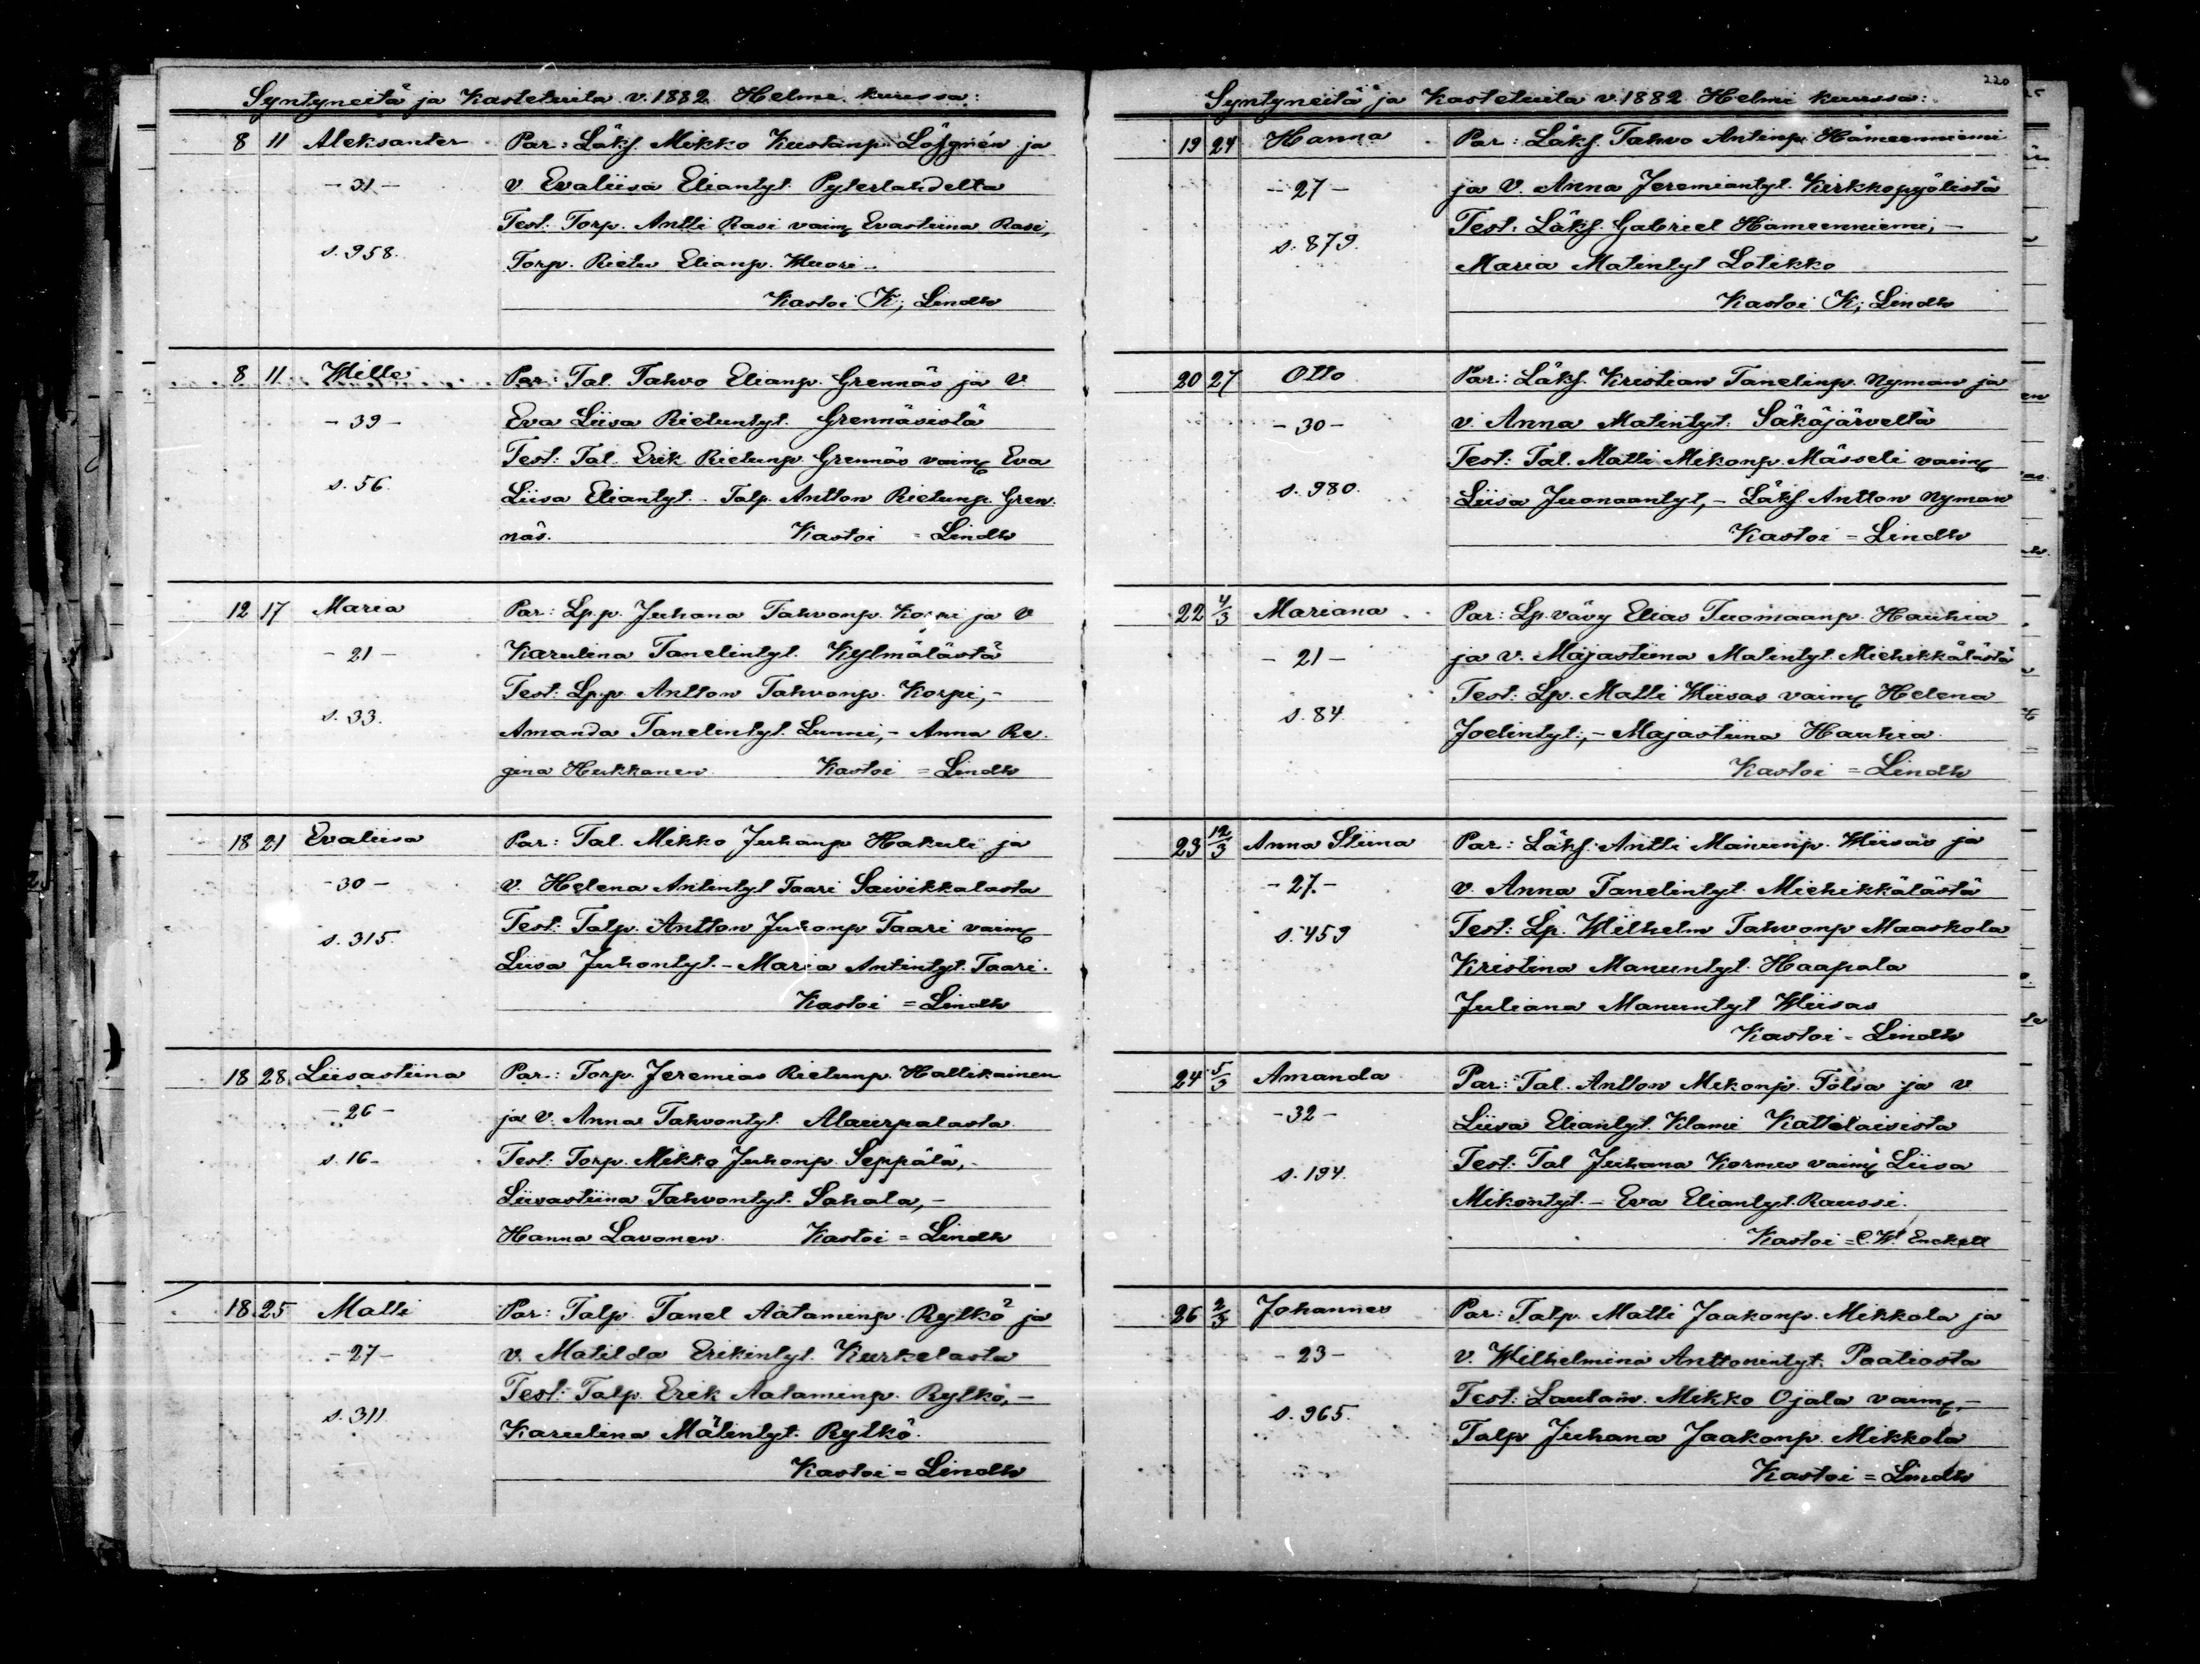 Syntyneitä ja Kastetuita v. 1882 Helmi kuussa:
8 11 Aleksanter Par: Läksf. Mikko Kustanp. Löfgrén ja
- 31 - v. Evaliisa Eliantyt. Pyterlahdelta
Test: Torp. Antti Rasi vaim. Evastiina Rasi,
s. 958. Torp. Rietu Elianp. Wuori
Kastoi K; Lindh
8 11 Wille Par: Tal. Tahvo Elianp. Grennäs ja v.
- 39 - Eva Liisa Rietuntyt. Grennäsistä
Test: Tal. Erik Rietunp. Grennäs vaim. Eva
s. 56. Liisa Eliantyt. - Talp. Antton Rietunp. Gren
näs. Kastoi = Lindh
12 17 Maria Par: Lp.p. Juhana Tahvonp. Korpi ja v
- 21 - Karulina Tanelintyt. Kylmälästä
Test: Lp.p. Antton Tahvonp. Korpi, -
s. 33. Amanda Tanelintyt. Lunni, - Anna Re
gina Hukkanen. Kastoi = Lindh
18 21 Evaliisa Par: Tal. Mikko Juhanp Hakuli ja
- 30 - v. Helena Antintyt Taari Saivikkalasta
Test: Talp. Antton Juhonp Taari vaim.
s. 315. Liisa Juhontyt. - Maria Antintyt. Taari.
Kastoi = Lindh
18 28 Liisastiina Par: Torp. Jeremias Rietunp. Hallikainen
- 26 - ja v. Anna Tahvontyt. Alaurpalasta
s. 16 Test: Torp. Mikko Juhonp. Seppälä, -
Liisastiina Tahvontyt. Sahala, -
Hanna Lavonen. Kastoi = Lindh
18 25 Matti Par: Talp. Tanel Aataminp. Rytkö ja
- 27 - v. Matilda Erikintyt. Kurkelasta
Test: Talp. Erik Aataminp. Rytkö, -
s. 311 Karulina Matintyt. Rytkö.
Kastoi = Lindh
220
Syntyneitä ja Kastetuita v. 1882 Helmi kuussa:
19 24 Hanna Par: Läksf. Tahvo Antinp. Hämeenniemi
- 27 - ja v. Anna Jeremiantyt. Kirkkopyölistä
Test: Läksf. Gabriel Hämeenniemi, -
s. 879. Maria Matintyt Lotikko
Kastoi K; Lindh
20 27 Otto Par: Läksf. Kristian Tanelinp. Nyman ja
- 30 - v. Anna Matintyt. Säkäjärveltä
Test: Tal. Matti Mikonp. Mässeli vaim.
s. 980. Liisa Juonaantyt, - Läksf. Antton Nyman
Kastoi = Lindh
22 4/3 Mariana Par: Lp. vävy Elias Tuomaanp. Hauhia
- 21 - ja v. Majastiina Matintyt. Miehikkälästä
Test: Lp. Matti Wiisas vaim. Helena
s. 84. Joelintyt:, - Majastiina Hauhia
Kastoi = Lindh
23 12/3 Anna Stiina Par: Läksf. Antti Manunp. Wiisas ja
- 27. - v. Anna Tanelintyt. Miehikkälästä
Test: Lp. Wilhelm Tahvonp Maaskola
s. 459 Kristina Manuntyt. Haapala
Juliana Manuntyt Wiisas
Kastoi = Lindh
24 5/3 Amanda Par: Tal. Antton Mikonp. Tölsa ja v.
- 32 - Liisa Eliantyt. Klami Kattilaisista
Test: Tal Juhana Kormu vaim. Liisa
s. 194. Mikontyt. - Eva Eliantyt. Raussi.
Kastoi = C. W. Enckell
26 2/3 Johannes Par: Talp. Matti Jaakonp. Mikkola ja
- 23 - v. Wilhelmina Anttonintyt. Paatiosta
Test: Lautam. Mikko Ojala vaim, -
s. 965. Talp Juhana Jaakonp. Mikkola
Kastoi = Lindh